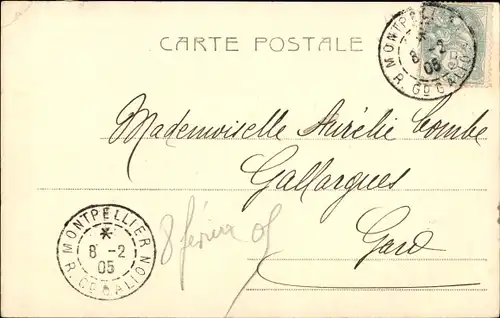 CARTE POSTALE
MONTPELLIER
*
8 -2
05
R. GD GALION
Mademoiselle Aurélie Combe
Gallargues
Gard
8 février 05
MONTPELLIER
*
8 -2
05
R. GD GALION